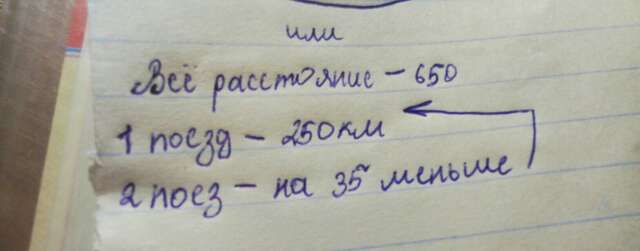 или
Всё расстояние - 650
1 поезд - 250км
2 поез - на 35 меньше